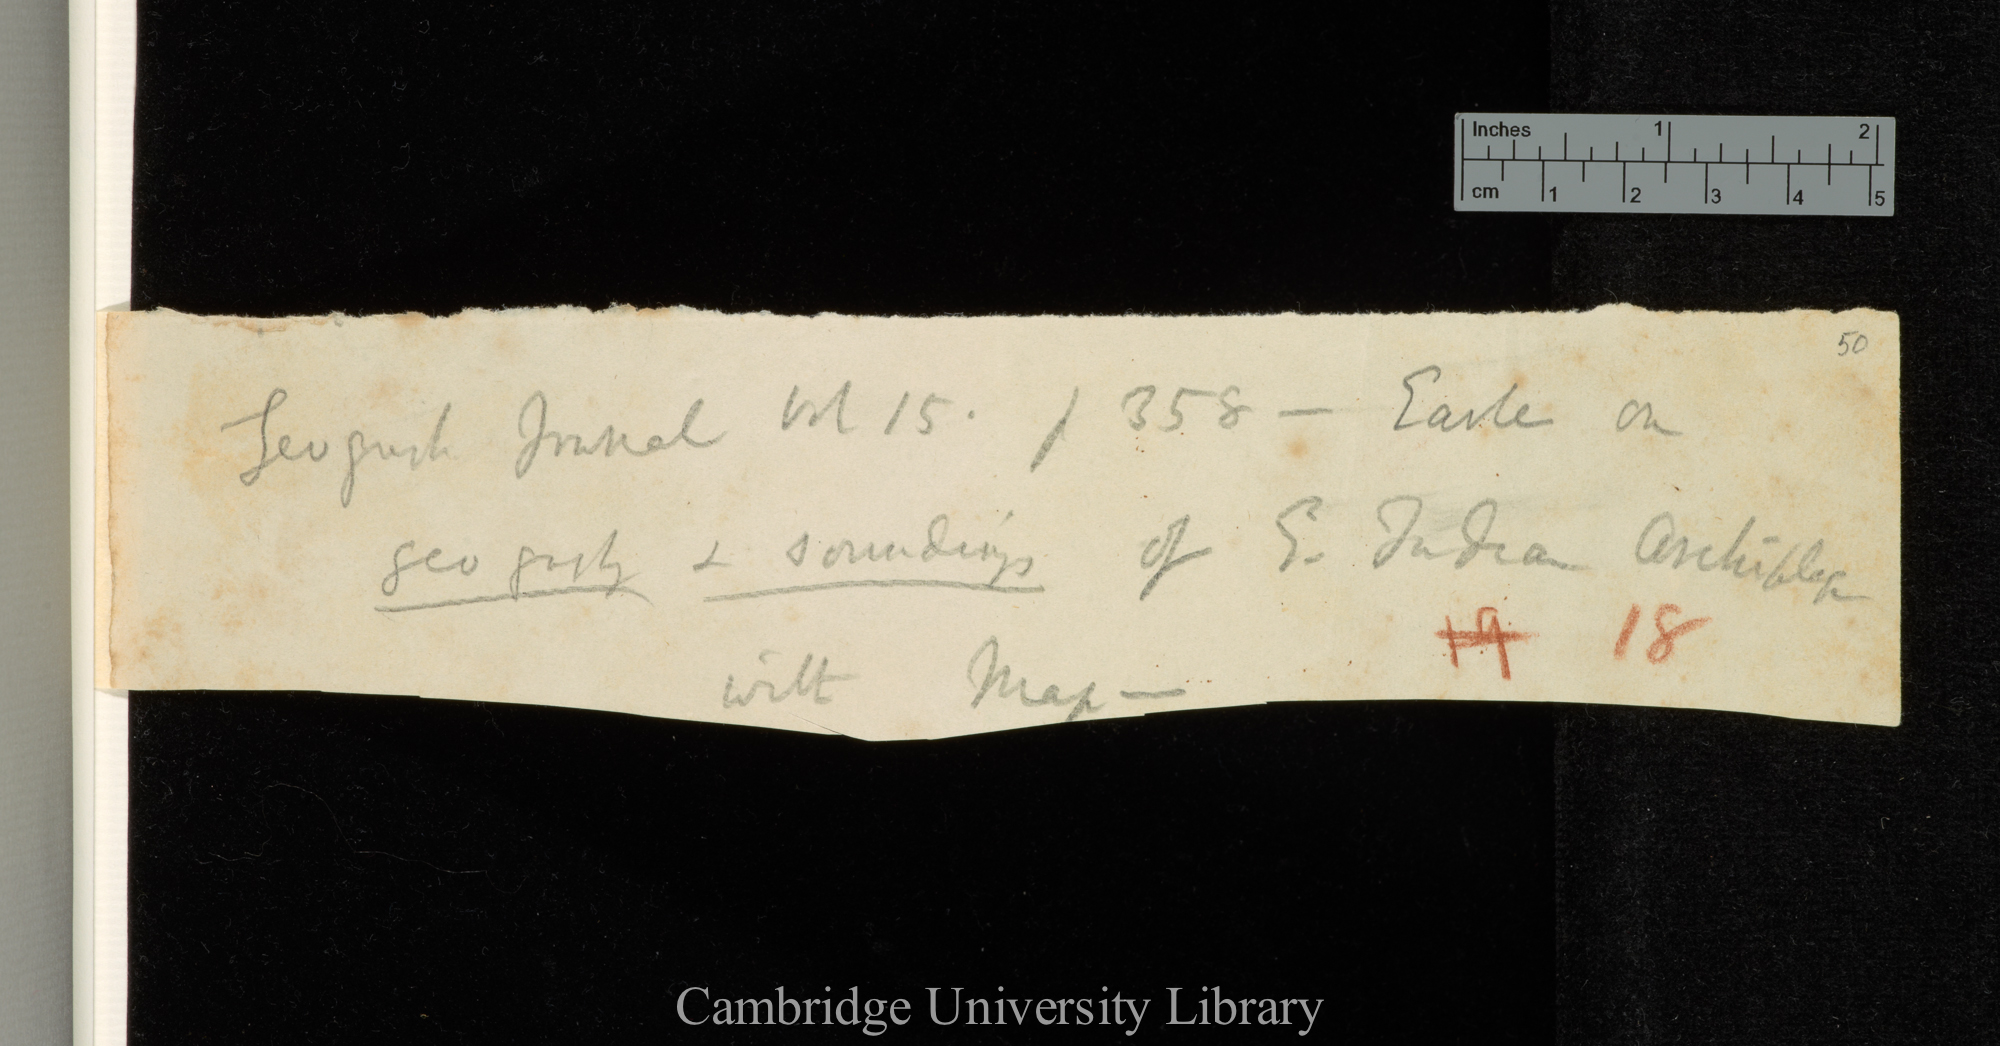 Inches 1 2
cm 1 2 3 4 5
50
Geograph Journal Vol 15. p 358 — Earle on
geography & soundings of E. Indian Archipelago
with Map —
19 18
Cambridge University Library